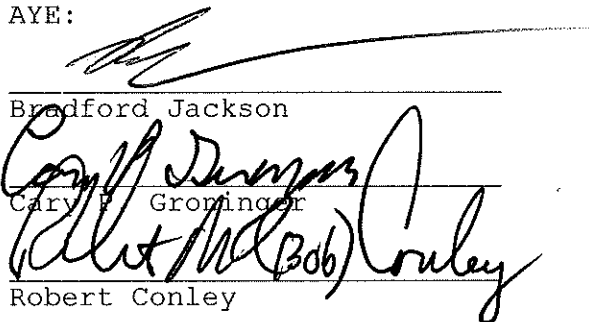 AYE:
Bradford Jackson
Cary P. Groninger
Cary P. Groninger
Robert M (Bob) Conley
Robert Conley